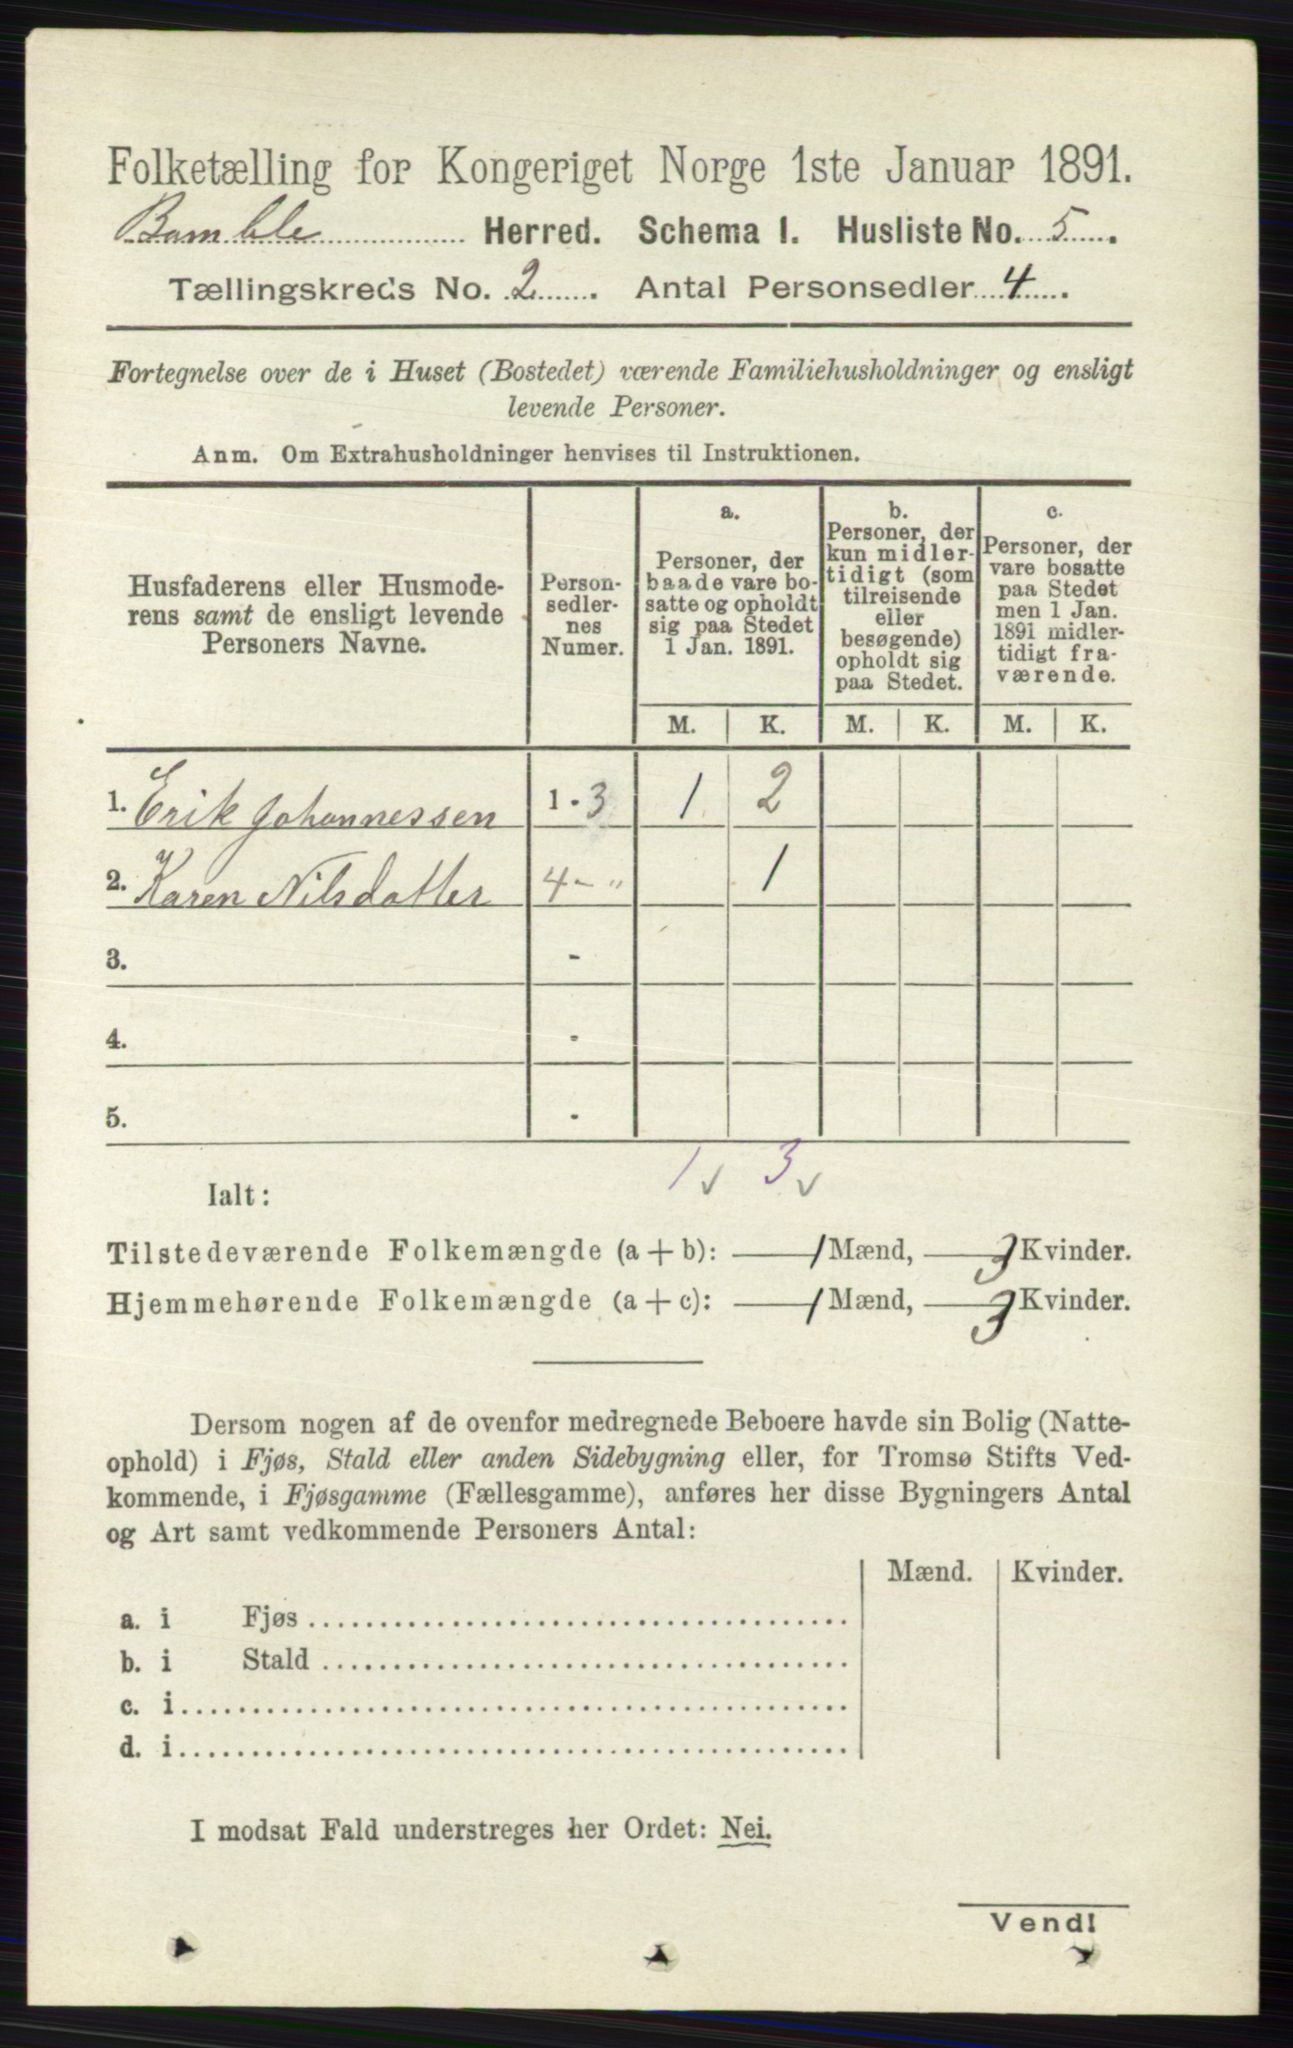 Folketælling for Kongeriget Norge 1ste Januar 1891.
Bamble Herred. Schema I. Husliste No. 5.
Tællingskreds No. 2. Antal Personsedler 4.
Fortegnelse over de i Huset (Bostedet) værende Familiehusholdninger og ensligt
levende Personer.
Anm. Om Extrahusholdninger henvises til Instruktionen.
Husfaderens eller Husmode-
rens samt de ensligt levende
Personers Navne.
Person-
sedler-
nes
Numer.
a.
Personer, der
baade vare bo-
satte og opholdt
sig paa Stedet
1 Jan. 1891.
b.
Personer, der
kun midler-
tidigt (som
tilreisende
eller
besøgende)
opholdt sig
paa Stedet.
c.
Personer, der
vare bosatte
paa Stedet
men 1 Jan.
1891 midler-
tidigt fra-
værende.
M. K. M. K. M. K.
1. Erik Johannessen 1 - 3 1 2
2. Karen Nilsdatter 4 - " 1
3. -
4. -
5. -
1 ✓ 3 ✓
Ialt:
Tilstedeværende Folkemængde (a + b): — 1 Mænd, — 3 Kvinder.
Hjemmehørende Folkemængde (a + c): — 1 Mænd, — 3 Kvinder.
Dersom nogen af de ovenfor medregnede Beboere havde sin Bolig (Natte-
ophold) i Fjøs, Stald eller anden Sidebygning eller, for Tromsø Stifts Ved-
kommende, i Fjøsgamme (Fællesgamme), anføres her disse Bygningers Antal
og Art samt vedkommende Personers Antal:
Mænd. Kvinder.
a. i Fjøs
b. i Stald
c. i
d. i
I modsat Fald understreges her Ordet: Nei.
Vend!